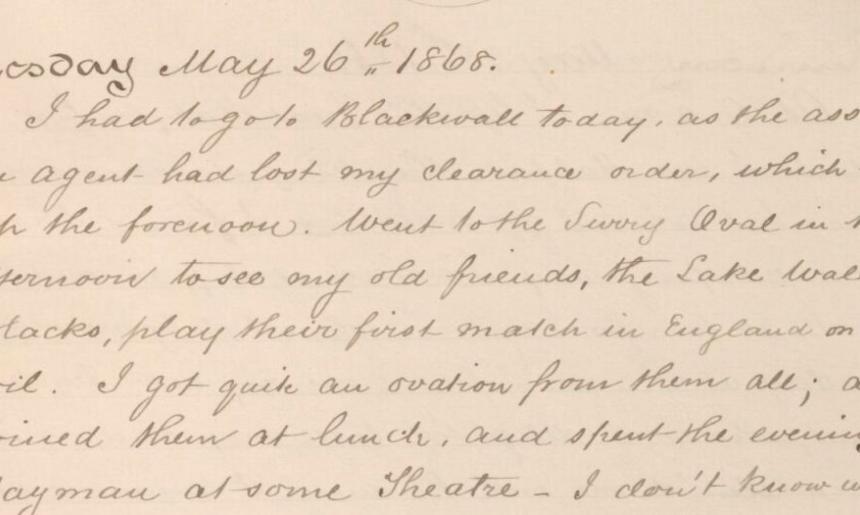 esday May 26th 1868.
I had to go to Blackwall today, as the ass
agent had lost my clearance order, which
the forenoon. Went to the Surry Oval in
ternoon to see my old friends, the Lake Wall
lacks, play their first match in England on
il. I got quite an ovation from them all; a
oined them at lunch, and spent the evening
layman at some Theatre - I don't know w